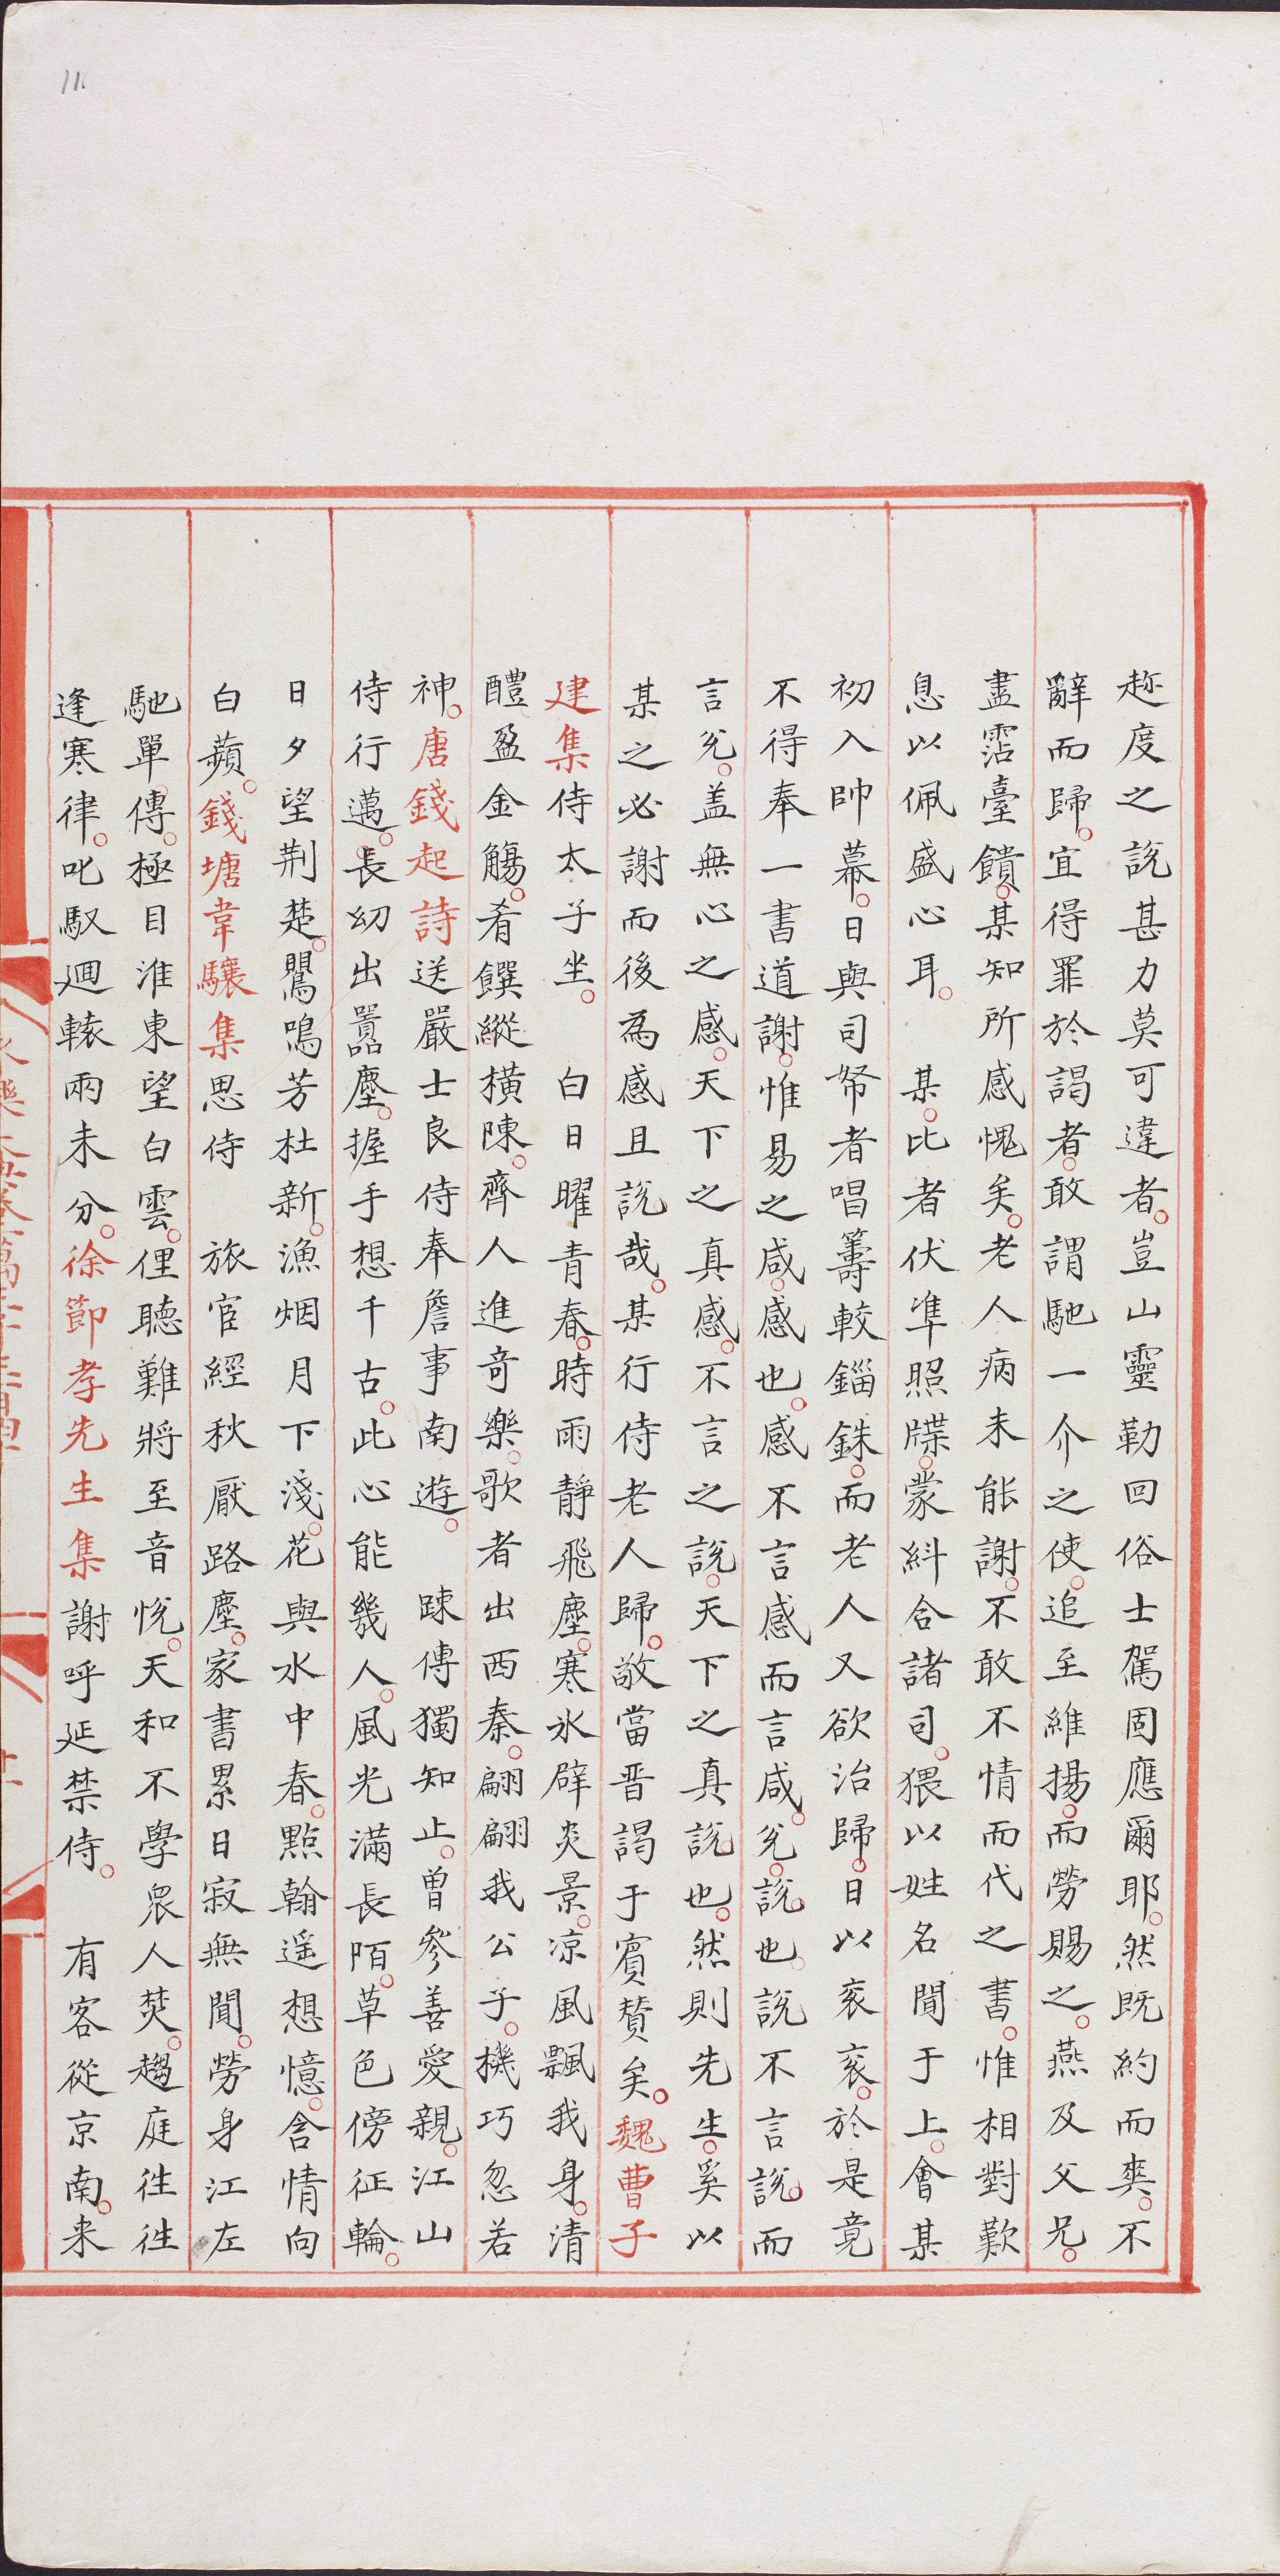 趂度之説甚力莫可違者豈山靈勒回俗士駕固應爾耶然既約而爽不
辭而歸宜得罪於謁者敢謂馳一介之使追至維揚而勞賜之燕及父兄
盡霑臺饋某知所感愧矣老人病未能謝不敢不情而代之書惟相對歎
息以佩盛心耳 某比者伏凖照牒蒙糾合諸司猥以姓名聞于上會某
初入帥幕日與司帑者唱籌較錙銖而老人又欲治歸日以衮衮於是竟
不得奉一書道謝惟易之咸感也感不言感而言咸兊說也說不言說而
言兊盖無心之感天下之真感不言之說天下之真說也然則先生奚以
某之必謝而後為感且說哉某行侍老人歸敬當晋謁于賓贊矣魏曹子
建集侍太子坐 白日曜青春時雨靜飛塵寒氷辟炎景凉風飄我身清
醴盈金觴肴饌縱橫陳齊人進奇樂歌者出西秦翩翩我公子機巧忽若
神唐錢起詩送嚴士良侍奉詹事南遊 踈傳獨知止曽參善愛親江山
侍行邁長㓜出嚣塵握手想千古此心能幾人風光滿長陌草色傍征輪
日夕望荆楚鸎鳴芳杜新漁烟月下淺花與水中春點翰遥想憶含情向
白蘋錢塘韋驤集思侍 旅宦經秋厭路塵家書累日寂無聞勞身江左
馳單傳極目淮東望白雲俚聽難將至音悅天和不學衆人焚趨庭徃徃
逢寒律叱馭廻轅兩未分徐節孝先生集謝呼延禁侍 有客從京南来